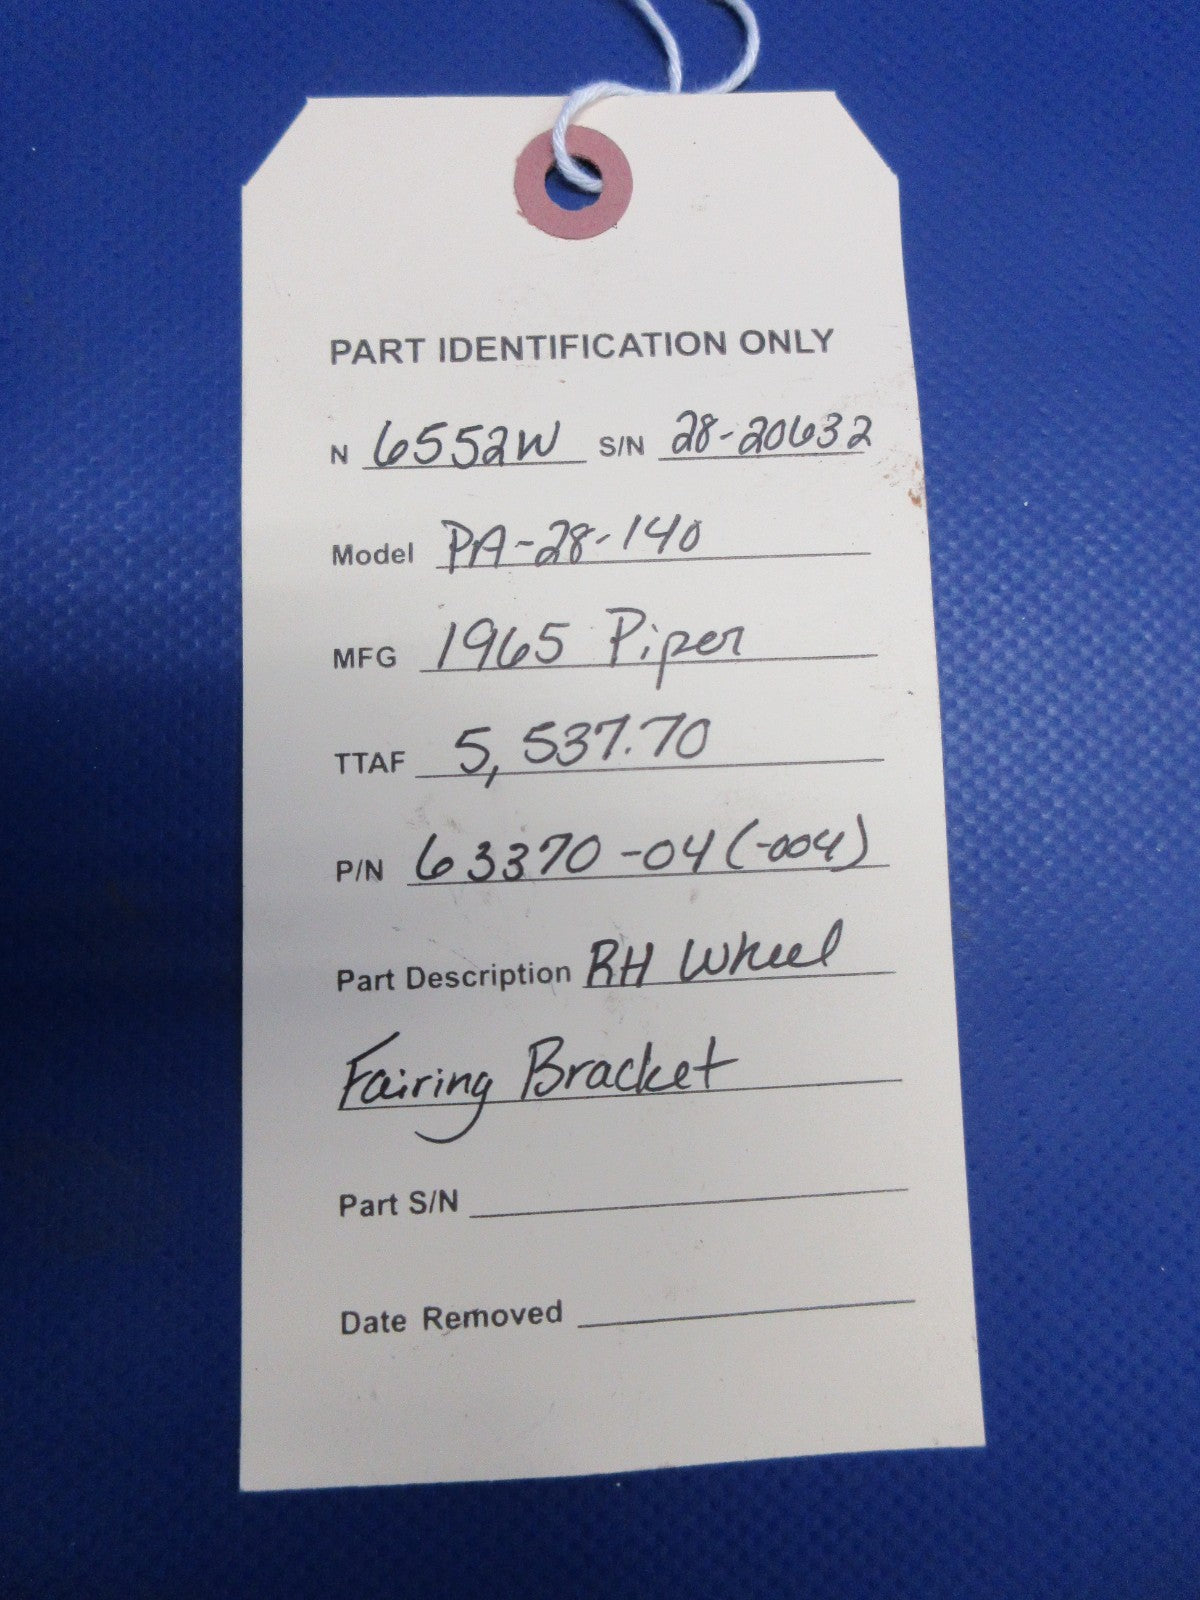 PART IDENTIFICATION ONLY
N 6552W S/N 28-20632
Model PA-28-140
MFG 1965 Piper
TTAF 5,537.70
P/N 63370-04 (-004)
Part Description RH Wheel
Fairing Bracket
Part S/N
Date Removed